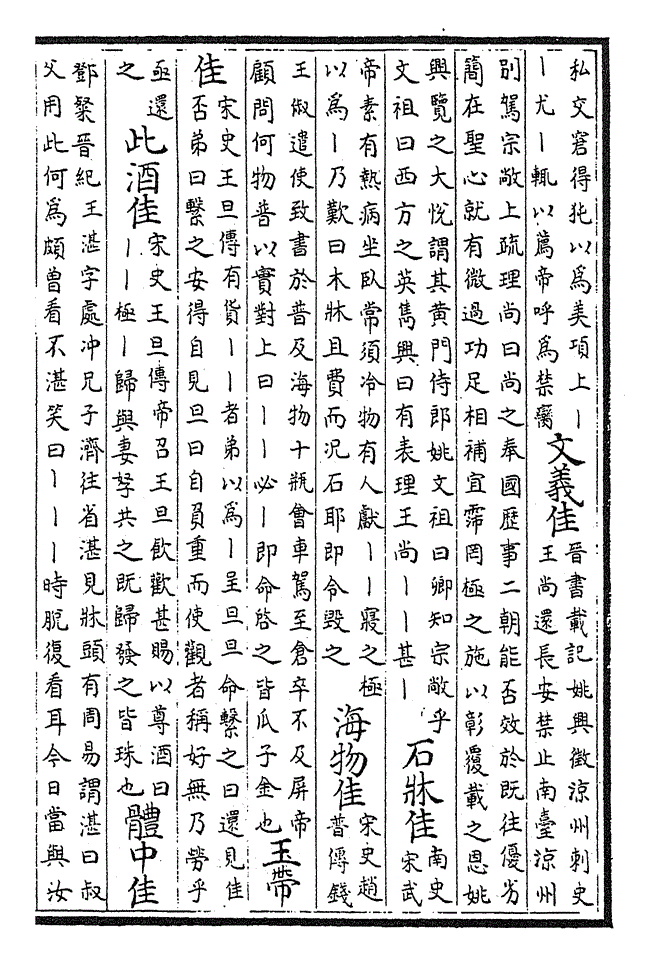 私交窘得㹠以爲美項上丨
丨尤丨輒以薦帝呼爲禁臠
文義佳
晉書載記姚興徵涼州刺史
王尚還長安禁止南臺涼州
別駕宗敞上疏理尚曰尚之奉國歷事二朝能否效於既往優劣
簡在聖心就有微過功足相補宜霈罔極之施以彰覆載之恩姚
興覽之大悅謂其黃門侍郎姚文祖曰卿知宗敞乎
文祖曰西方之英雋興曰有表理王尚丨丨甚丨
石牀佳
南史
宋武
帝素有熱病坐臥常須冷物有人獻丨丨寢之極
以爲丨乃歎曰木牀且費而况石耶即令毀之
海物佳
宋史趙
普傳錢
王俶遣使致書於普及海物十瓶會車駕至倉卒不及屏帝
顧問何物普以實對上曰丨丨必丨即命啓之皆瓜子金也
玉帶
佳
宋史王旦傳有貨丨丨者弟以爲丨呈旦旦命繫之曰還見佳
否弟曰繫之安得自見旦曰自負重而使觀者稱好無乃勞乎
亟還
之
此酒佳
宋史王旦傳帝召王旦飲歡甚賜以尊酒曰
丨丨極丨歸與妻孥共之既歸發之皆珠也
體中佳
鄧粲晉紀王湛字處冲兄子濟往省湛見牀頭有周易謂湛曰叔
父用此何爲頗曾看不湛笑曰丨丨丨時脫復看耳今日當與汝